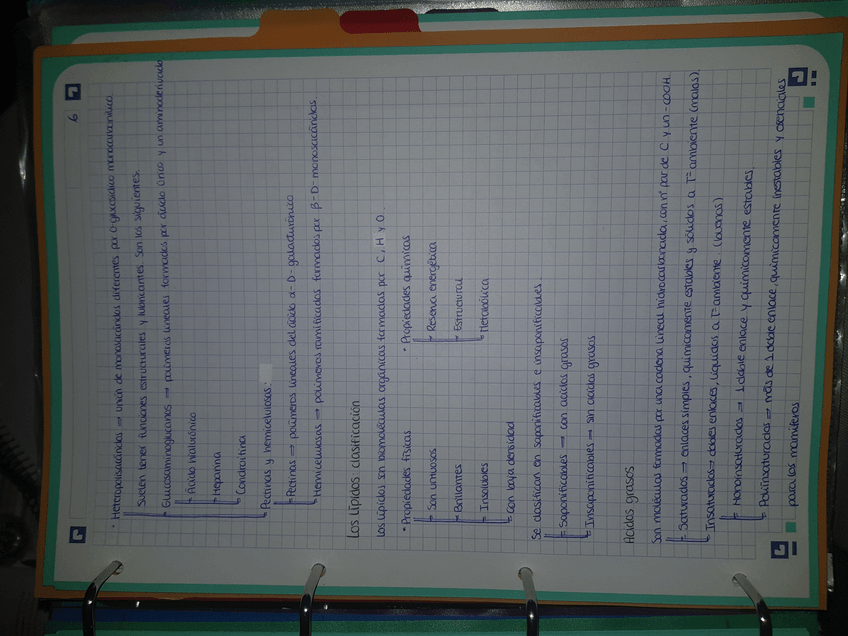 6
• Heteropolisacáridos ⇒ unión de monosacáridos diferentes por O-glucosídico monocarbonílico.
Suelen tener funciones estructurales y lubricantes. Son los siguientes:
Glucosaminoglucanos ⇒ polímeros lineales formados por ácido únco y un aminoderivado
Ácido hialurónico
Heparina
Condroitina
Pectinas y hemicelulosas:
Pectinas ⇒ polímeros lineales del ácido α-D-galacturónico
Hemicelulosas ⇒ polímeros ramificados formados por β-D-monosacáridos.
Los lípidos clasificación
Los lípidos son biomoléculas orgánicas formadas por C, H y O.
• Propiedades físicas
Son untuosos
Brillantes
Insolubles
Con baja densidad
• Propiedades químicas
Reserva energética
Estructural
Metabólica
Se clasifican en saponificables e insaponificables.
Saponificables ⇒ con ácidos grasos
Insaponificables ⇒ sin ácidos grasos
Ácidos grasos
Son moléculas formadas por una cadena lineal hidrocarbonada, con nº par de C y un -COOH.
Saturados ⇒ enlaces simples, quimicamente estables y sólidos a Tª ambiente (malos).
Insaturados ⇒ dobles enlaces, líquidos a Tª ambiente (buenos)
Monoinsaturados ⇒ 1 doble enlace y quimicamente estables.
Poliinsaturados ⇒ más de 1 doble enlace, quimicamente inestables y esenciales
para los mamíferos